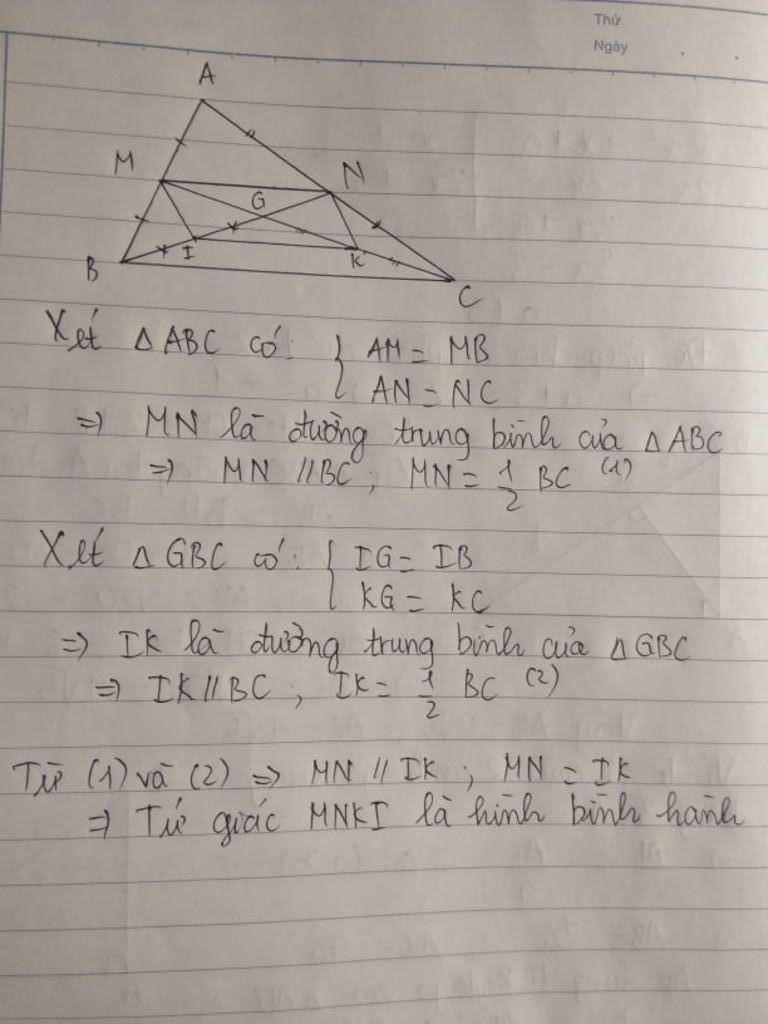 Thứ
Ngày
A
M
N
G
B
I
K
C
Xét Δ ABC có: { AM = MB
AN = NC
⇒ MN là đường trung bình của Δ ABC
⇒ MN // BC ; MN = 1/2 BC (1)
Xét Δ GBC có: { IG = IB
KG = KC
⇒ IK là đường trung bình của Δ GBC
⇒ IK // BC , IK = 1/2 BC (2)
Từ (1) và (2) ⇒ MN // IK ; MN = IK
⇒ Tứ giác MNKI là hình bình hành